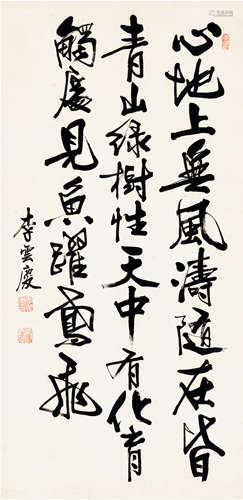 心地上無風濤隨在皆
青山綠樹性天中有化育
觸處見魚躍鳶飛
李雲慶